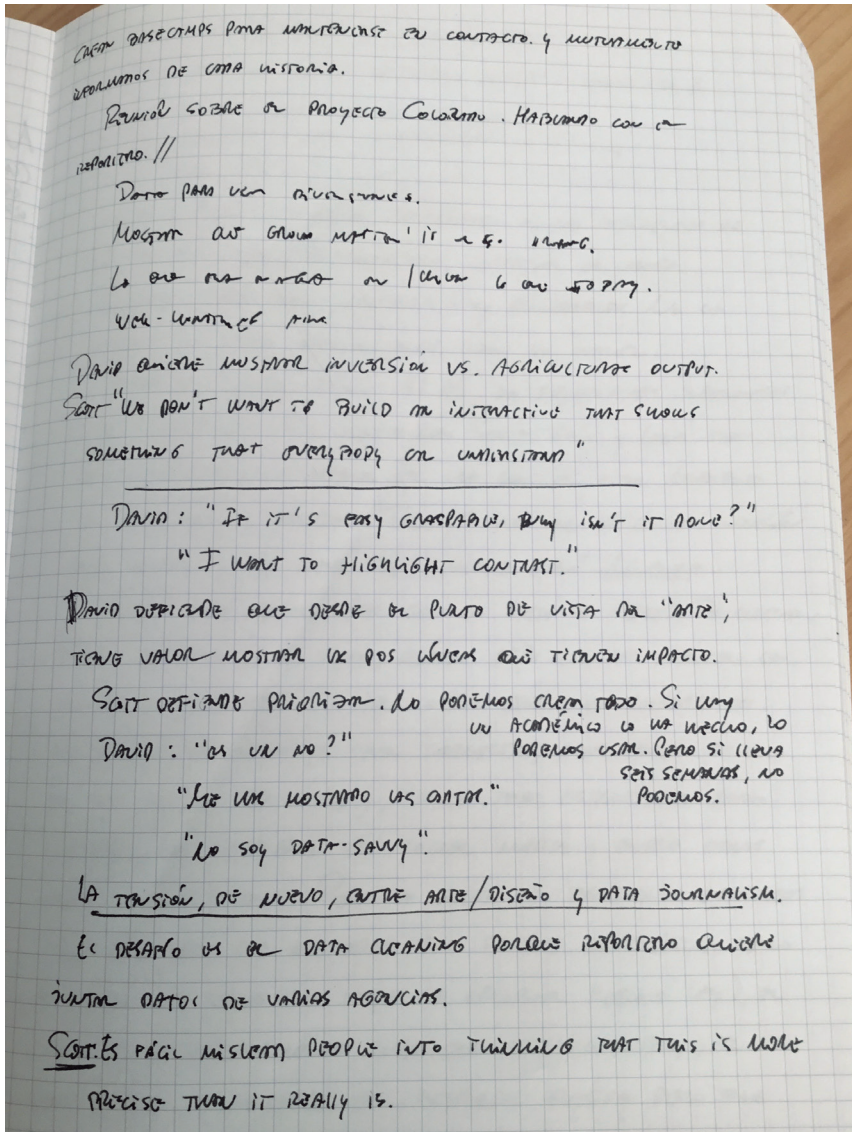 CREAN BASECAMPS PARA MANTENERSE EN CONTACTO. Y MUTUAMENTE
INFORMADOS DE CADA HISTORIA.
REUNIÓN SOBRE EL PROYECTO COLORADO. HABLANDO CON EL
REPORTERO. //
PARA VER
MOSTRAR QUE
LO QUE LO QUE
DAVID QUIERE MOSTRAR INVERSIÓN VS. AGRICULTURAL OUTPUT.
SCOTT "WE DON'T WANT TO BUILD AN INTERACTIVE THAT SHOWS
SOMETHING THAT EVERYBODY CAN UNDERSTAND"
DAVID: "IF IT'S EASY GRASPABLE, WHY ISN'T IT DONE?"
"I WANT TO HIGHLIGHT CONTRAST."
DAVID DEFIENDE QUE DESDE EL PUNTO DE VISTA DEL "ARTE",
TIENE VALOR MOSTRAR LAS DOS LÍNEAS QUE TIENEN IMPACTO.
SCOTT DEFIENDE PRIORIZAR. NO PODEMOS CREAR TODO. SI
UN ACADÉMICO LO HA HECHO, LO
DAVID: "ES UN NO?" PODEMOS USAR. PERO SI LLEVA
SEIS SEMANAS, NO
"ME HAN MOSTRADO LAS CARTAS." PODEMOS.
"NO SOY DATA-SAVVY".
LA TENSIÓN, DE NUEVO, ENTRE ARTE/DISEÑO Y DATA JOURNALISM.
EL DESAFÍO ES EL DATA CLEANING PORQUE REPORTERO QUIERE
JUNTAR DATOS DE VARIAS AGENCIAS.
SCOTT: ES FÁCIL MISLEAD PEOPLE INTO THINKING THAT THIS IS MORE
PRECISE THAN IT REALLY IS.